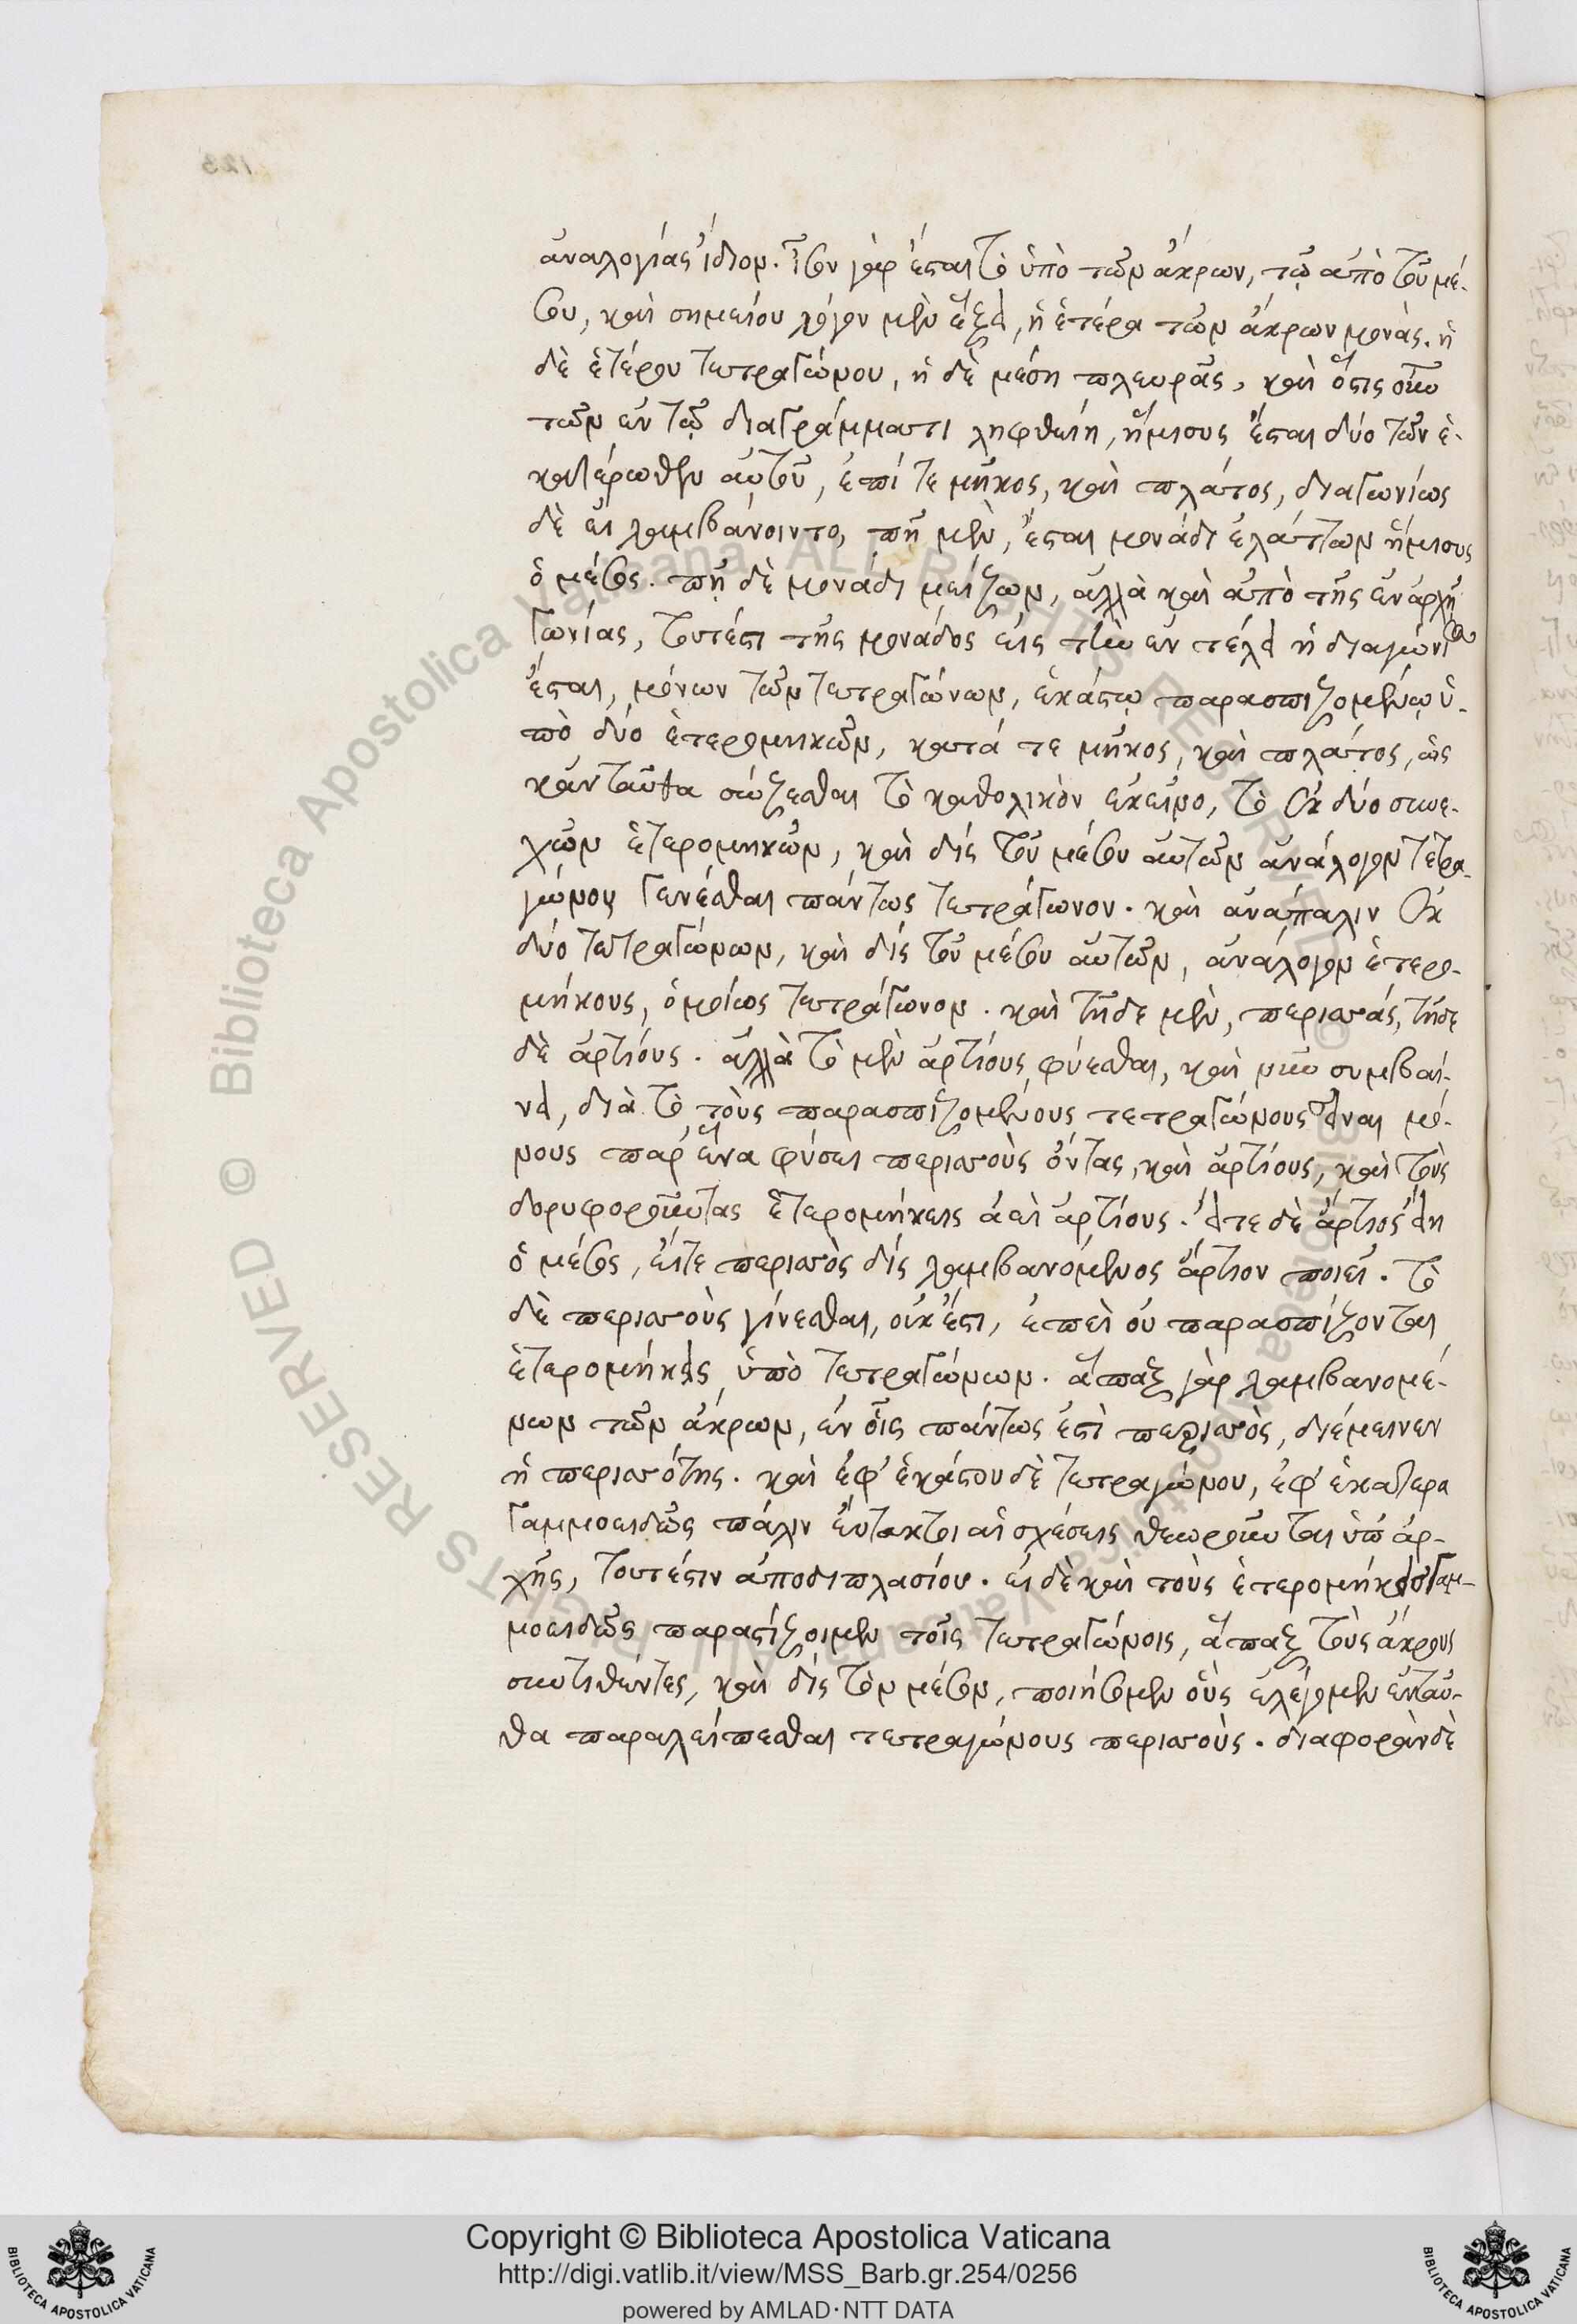 123
ἀναλογίας ἴδιον. ἴσον γὰρ ἔσται τὸ ὑπὸ τῶν ἄκρων, τῷ ἀπὸ τοῦ μέ-
σου, καὶ σημείου λόγον μὲν ἕξει, ἡ ἑτέρα τῶν ἄκρων μονὰς. ἡ
δὲ ἑτέρου τετραγώνου, ἡ δὲ μέση πλευρᾶς, καὶ ὅστις οὖν
τῶν ἐν τῷ διαγράμματι ληφθείη, ἥμισυς ἔσται δύο τῶν ἑ-
κατέρωθεν αὐτοῦ, ἐπί τε μῆκος, καὶ πλάτος, διαγωνίως
δὲ εἰ λαμβάνοιντο, πῆ μὲν, ἔσται μονάδι ἐλάττων ἥμισυς
ὁ μέσος. πῆ δὲ μονάδι μείζων, ἀλλὰ καὶ ἀπὸ τῆς ἐν ἀρχῇ
γωνίας, τουτέστι τῆς μονάδος εἰς τὴν ἐν τέλει ἡ διαγώνιος
ἔσται, μόνων τῶν τετραγώνων, ἑκάστῳ παρασπιζομένῳ ὑ-
πὸ δύο ἑτερομηκῶν, κατά τε μῆκος, καὶ πλάτος, ὡς
κἀνταῦθα σώζεσθαι τὸ καθολικὸν ἐκεῖνο, τὸ ἐκ δύο συνε-
χῶν ἑτερομηκῶν, καὶ δὶς τοῦ μέσου αὐτῶν ἀνάλογον τετρα-
γώνου γενέσθαι πάντως τετράγωνον. καὶ ἀνάπαλιν ἐκ
δύο τετραγώνων, καὶ δὶς τοῦ μέσου αὐτῶν, ἀνάλογον ἑτερο-
μήκους, ὁμοίως τετράγωνον. καὶ τῇδε μὲν, περισσάς, τῇδε
δὲ ἀρτίους. ἀλλὰ τὸ μὲν ἀρτίους φύεσθαι, καὶ νῦν συμβαί-
νει, διὰ τὸ τοὺς παρασπιζομένους τετραγώνους εἶναι μό-
νους παρ' ἕνα φύσει περισσοὺς ὄντας, καὶ ἀρτίους, καὶ τοὺς
δορυφοροῦντας ἑτερομήκεις ἀεὶ ἀρτίους. εἴτε δὲ ἄρτιος εἴη
ὁ μέσος, εἴτε περισσὸς δὶς λαμβανόμενος ἄρτιον ποιεῖ. τὸ
δὲ περισσοὺς γίνεσθαι, οὐκ ἔστι, ἐπεὶ οὐ παρασπίζονται
ἑτερομήκεις ὑπὸ τετραγώνων. ἅπαξ γὰρ λαμβανομέ-
νων τῶν ἄκρων, ἐν οἷς πάντως ἐστὶ περισσὸς, διέμεινεν
ἡ περισσότης. καὶ ἐφ' ἑκάστου δὲ τετραγώνου, ἐφ' ἑκάτερα
γαμμοειδῶς πάλιν εὔτακτοι αἱ σχέσεις θεωροῦνται ὑπ' ἀρ-
χῆς, τουτέστιν ἀποδιπλασίου. εἰ δὲ καὶ τοὺς ἑτερομήκεις γαμ-
μοειδῶς παρασπίζοιμεν τοῖς τετραγώνοις, ἅπαξ τοὺς ἄκρους
συντιθέντες, καὶ δὶς τὸν μέσον, ποιήσομεν οὓς ἐλέγομεν ἐνταῦ-
θα παραλείπεσθαι τετραγώνους περισσοὺς. διαφορὰν δὲ
Copyright © Biblioteca Apostolica Vaticana
http://digi.vatlib.it/view/MSS_Barb.gr.254/0256
powered by AMLAD·NTT DATA